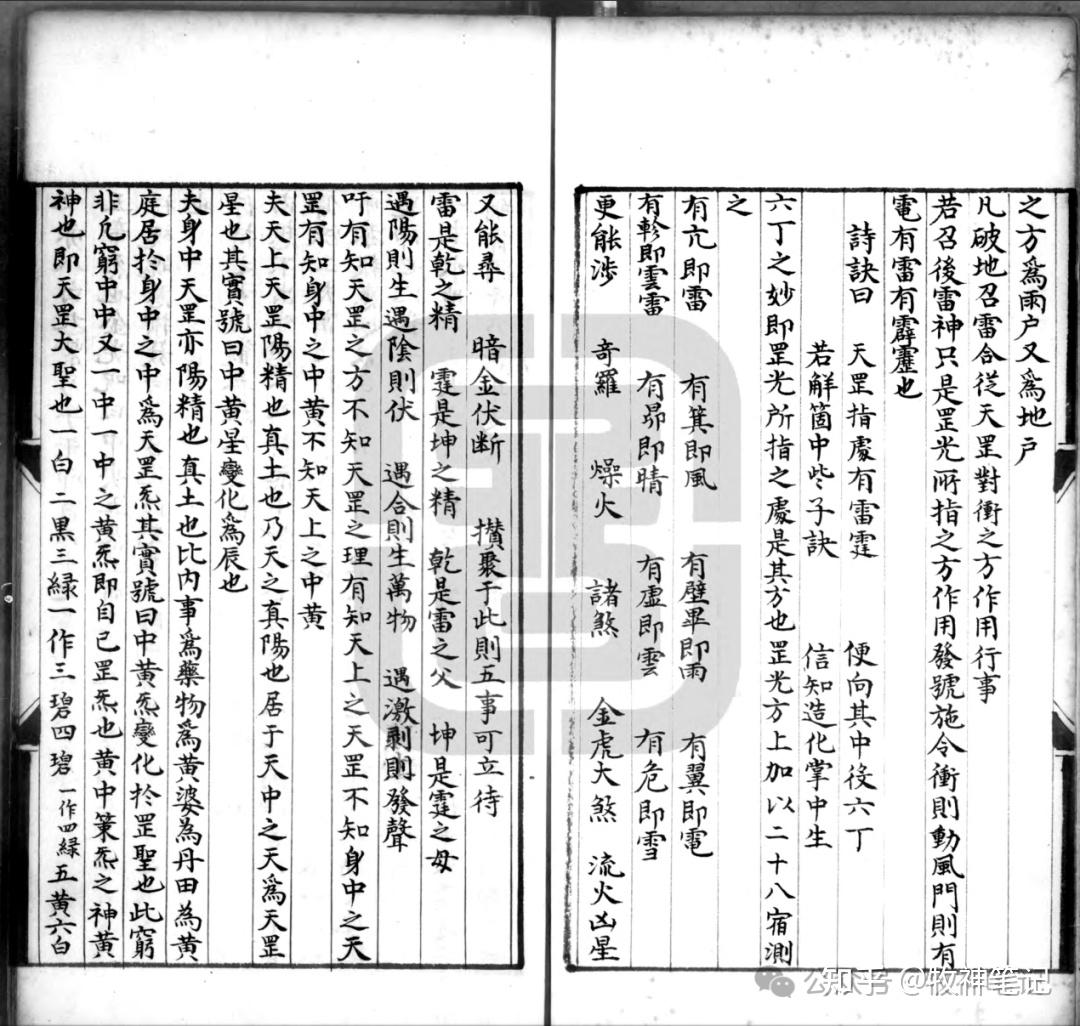 之方爲雨户又爲地户
凡破地召雷合从天罡對衝之方作用行事
若召後雷神只是罡光所指之方作用發號施令衝則動風門則有
電有雷有霹靂也
詩訣曰 天罡指處有雷霆 便向其中役六丁
若解箇中些子訣 信知造化掌中生
六丁之妙即罡光所指之處是其方也罡光方上加以二十八宿測
之
有亢即雷 有箕即風 有壁畢即雨 有翼即電
有軫即雲雷 有昴即晴 有虛即雲 有危即雪
更能涉 奇羅 燥火 諸煞 金虎大煞 流火凶星
又能尋 暗金伏断 攅聚于此則五事可立待
雷是乾之精 霆是坤之精 乾是雷之父 坤是霆之母
遇陽則生遇陰則伏 遇合則生萬物 遇激剥則發聲
吁有知天罡之方不知天罡之理有知天上之天罡不知身中之天
罡有知身中之中黄不知天上之中黄
夫天上天罡陽精也是真土也乃天之真陽也居于天中之天爲天罡
星也其實號曰中黄星變化爲辰也
夫身中天罡亦陽精也真土也比内事爲藥物爲黄婆為丹田為黄
庭居於身中之中為天罡炁其實號曰中黄炁變化於罡聖也此窮
非凢窮中中又一中一中之黄炁即自已罡炁也黄中策炁之神黄
神也即天罡大聖也一白二黑三緑一作三碧四碧一作四緑五黄六白
知乎 @牧神笔记